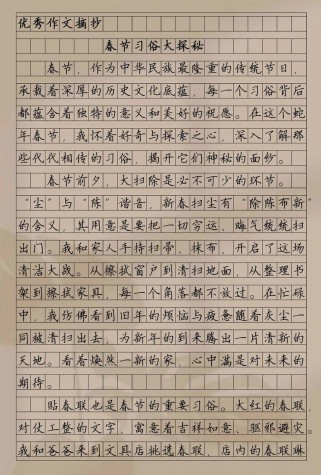 优秀作文摘抄
春节习俗大探秘
春节，作为中华民族最隆重的传统节日，
承载着深厚的历史文化底蕴，每一个习俗背后
都蕴含着独特的意义和美好的祝愿。在这个蛇
年春节，我怀着好奇与探索之心，深入了解那
些代代相传的习俗，揭开它们神秘的面纱。
春节前夕，大扫除是必不可少的环节。
“尘”与“陈”谐音，新春扫尘有“除陈布新”
的含义，其用意是要把一切穷运、晦气统统扫
出门。我和家人手持扫帚、抹布，开启了这场
清洁大战。从擦拭窗户到清扫地面，从整理书
架到擦拭家具，每一个角落都不放过。在忙碌
中，我仿佛看到旧年的烦恼与疲惫随着灰尘一
同被清扫出去，为新年的到来腾出一片清新的
天地。看着焕然一新的家，心中满是对未来的
期待。
贴春联也是春节的重要习俗。大红的春联，
对仗工整的文字，寓意着吉祥如意、驱邪避灾。
我和爸爸来到文具店挑选春联，店内的春联琳